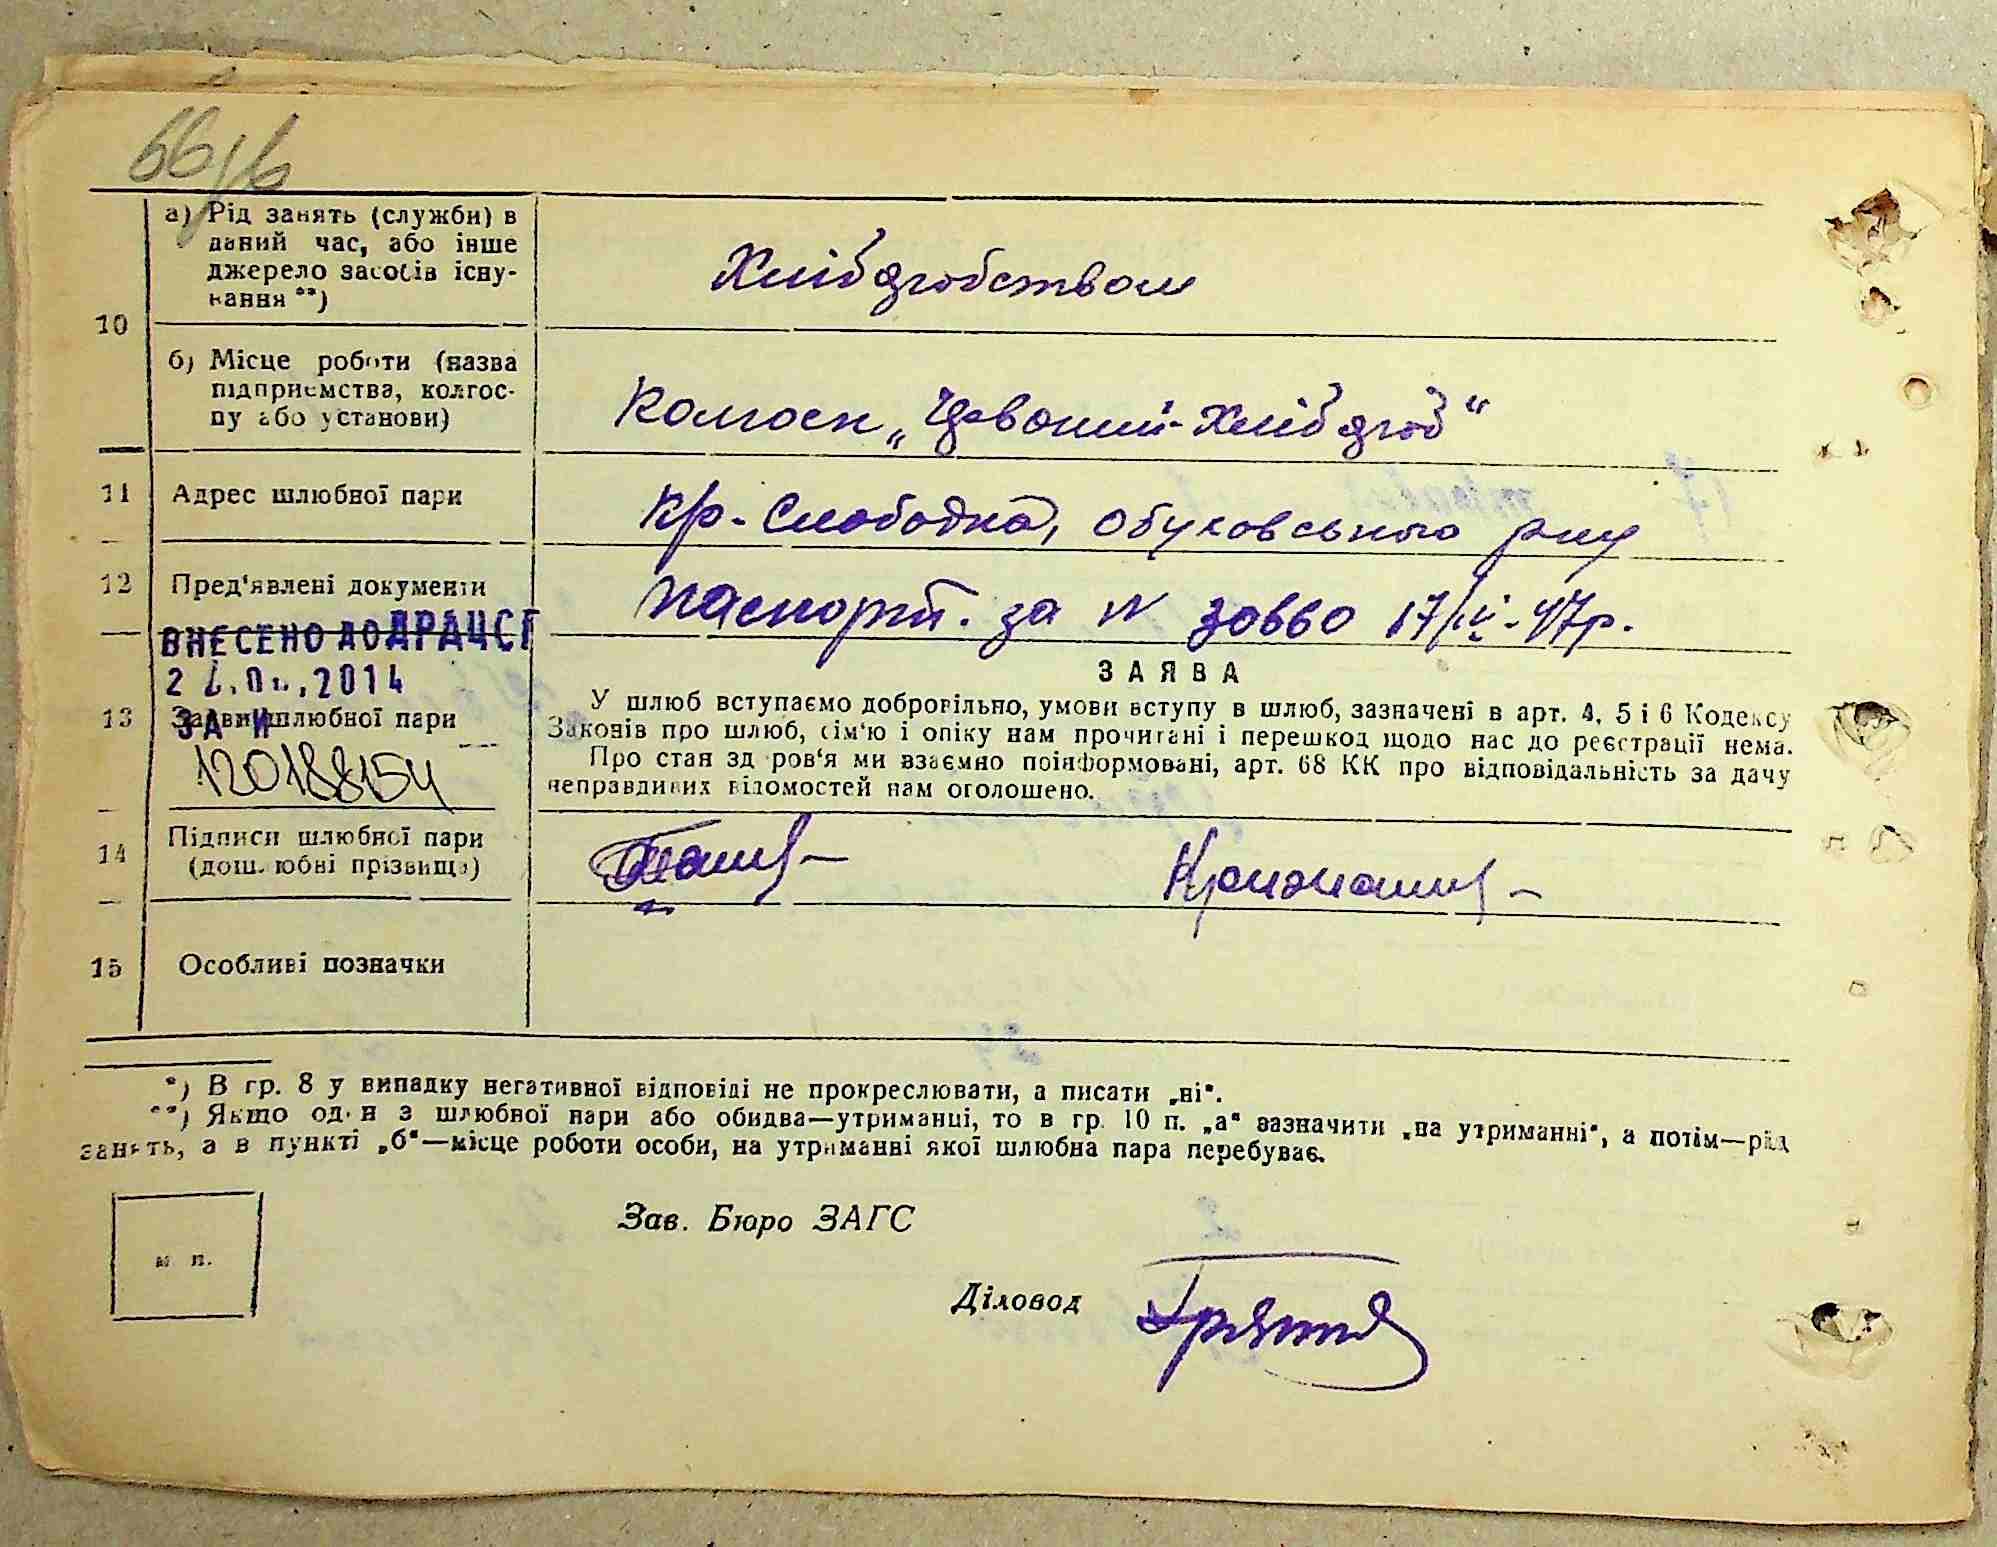 66/в
а) Рід занять (служби) в
даний час, або інше
джерело засобів існу-
вання **)
Хліборобством
10
б) Місце роботи (назва
підприємства, колгос-
пу або установи)
Колгосп „Червоний-Хлібороб“
11 Адрес шлюбної пари
Кр-Слободка, Обуховського р-ну
12 Пред'явлені документи
паспорти. за № 30660 17/IV-47р.
ВНЕСЕНО ДО ДРАЦСГ
2014
13 Заява шлюбної пари
12018854
ЗАЯВА
У шлюб вступаємо добровільно, умови вступу в шлюб, зазначені в арт. 4, 5 і 6 Кодексу
Законів про шлюб, сім'ю і опіку нам прочитані і перешкод щодо нас до реєстрації нема.
Про стан здоров'я ми взаємно поінформовані, арт. 68 КК про відповідальність за дачу
неправдивих відомостей нам оголошено.
14 Підписи шлюбної пари
(дошлюбні прізвища)
15 Особливі позначки
*) В гр. 8 у випадку негативної відповіді не прокреслювати, а писати „ні“.
**) Якщо один з шлюбної пари або обидва—утриманці, то в гр. 10 п. „а“ зазначити „на утриманні“, а потім—рід
занять, а в пункті „б“—місце роботи особи, на утриманні якої шлюбна пара перебуває.
м п.
Зав. Бюро ЗАГС
Діловод